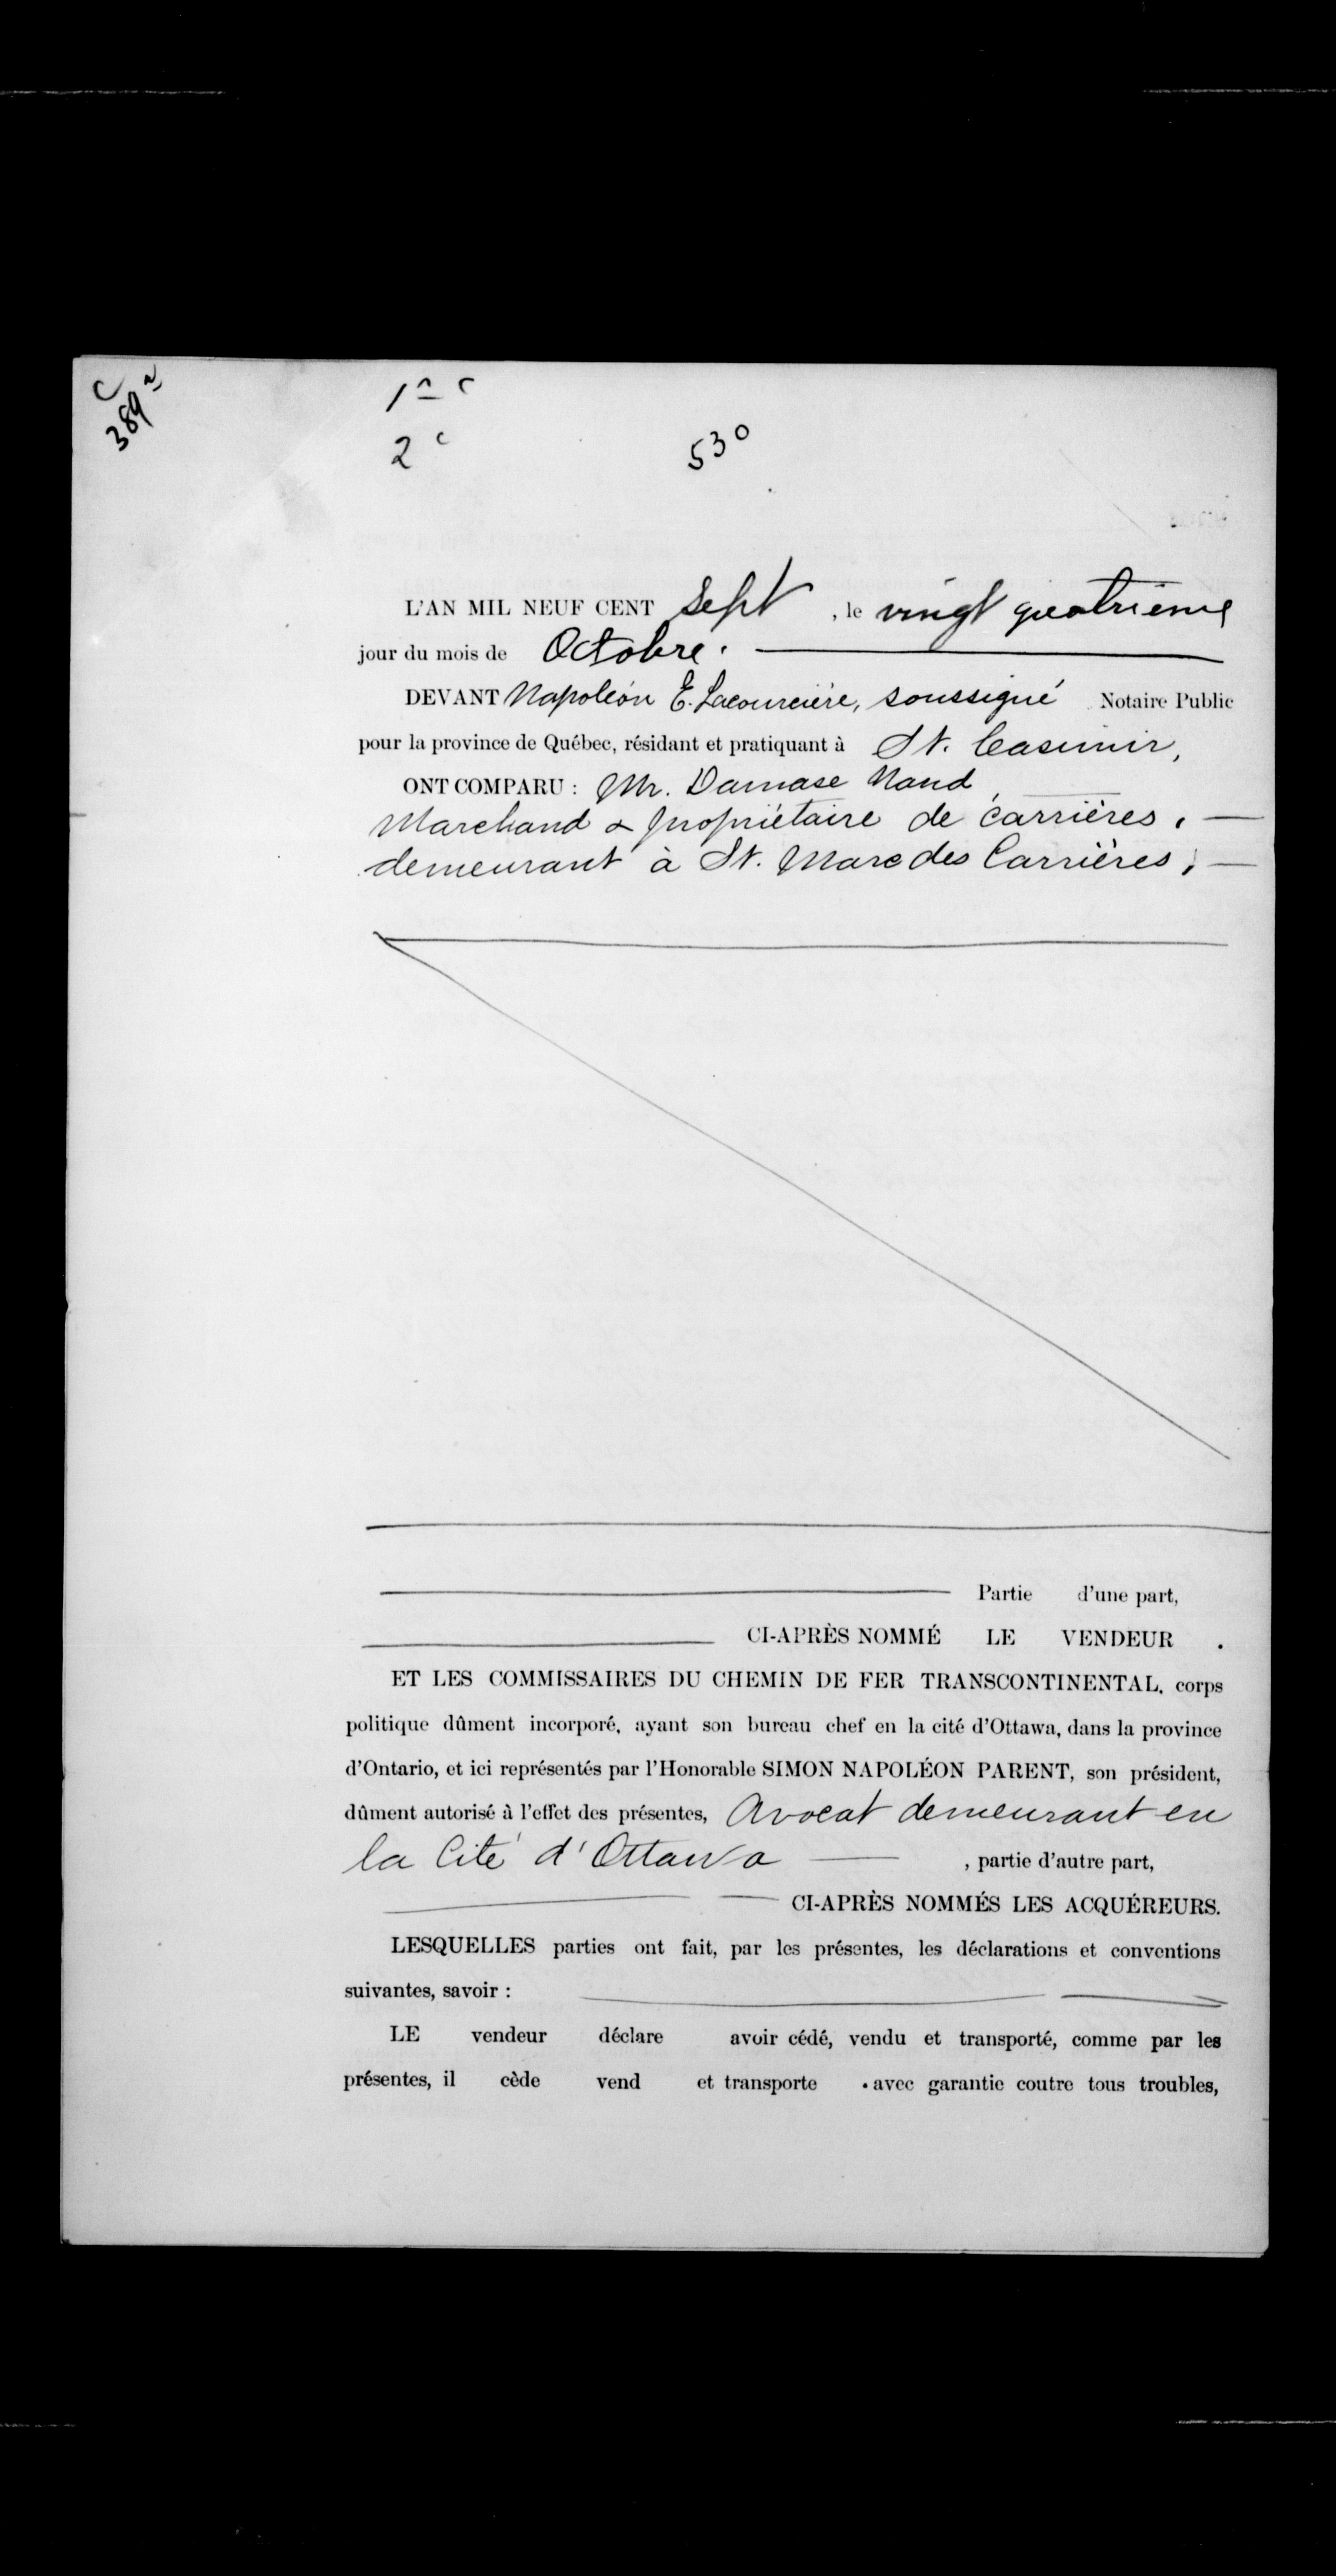 C
389
1
2 c
530
L'AN MIL NEUF CENT Sept , le vingt quatrième
jour du mois de Octobre.
DEVANT Napoléon E. Lacourcière, soussigné Notaire Public
pour la province de Québec, résidant et pratiquant à St. Casimir,
ONT COMPARU : Mr. Damase Naud,
Marchand & propriétaire de carrières,
demeurant à St. Marc des Carrières,
Partie d'une part,
CI-APRÈS NOMMÉ LE VENDEUR .
ET LES COMMISSAIRES DU CHEMIN DE FER TRANSCONTINENTAL, corps
politique dûment incorporé, ayant son bureau chef en la cité d'Ottawa, dans la province
d'Ontario, et ici représentés par l'Honorable SIMON NAPOLÉON PARENT, son président,
dûment autorisé à l'effet des présentes, Avocat demeurant en
la Cité d'Ottawa , partie d'autre part,
CI-APRÈS NOMMÉS LES ACQUÉREURS.
LESQUELLES parties ont fait, par les présentes, les déclarations et conventions
suivantes, savoir :
LE vendeur déclare avoir cédé, vendu et transporté, comme par les
présentes, il cède vend et transporte . avec garantie coutre tous troubles,